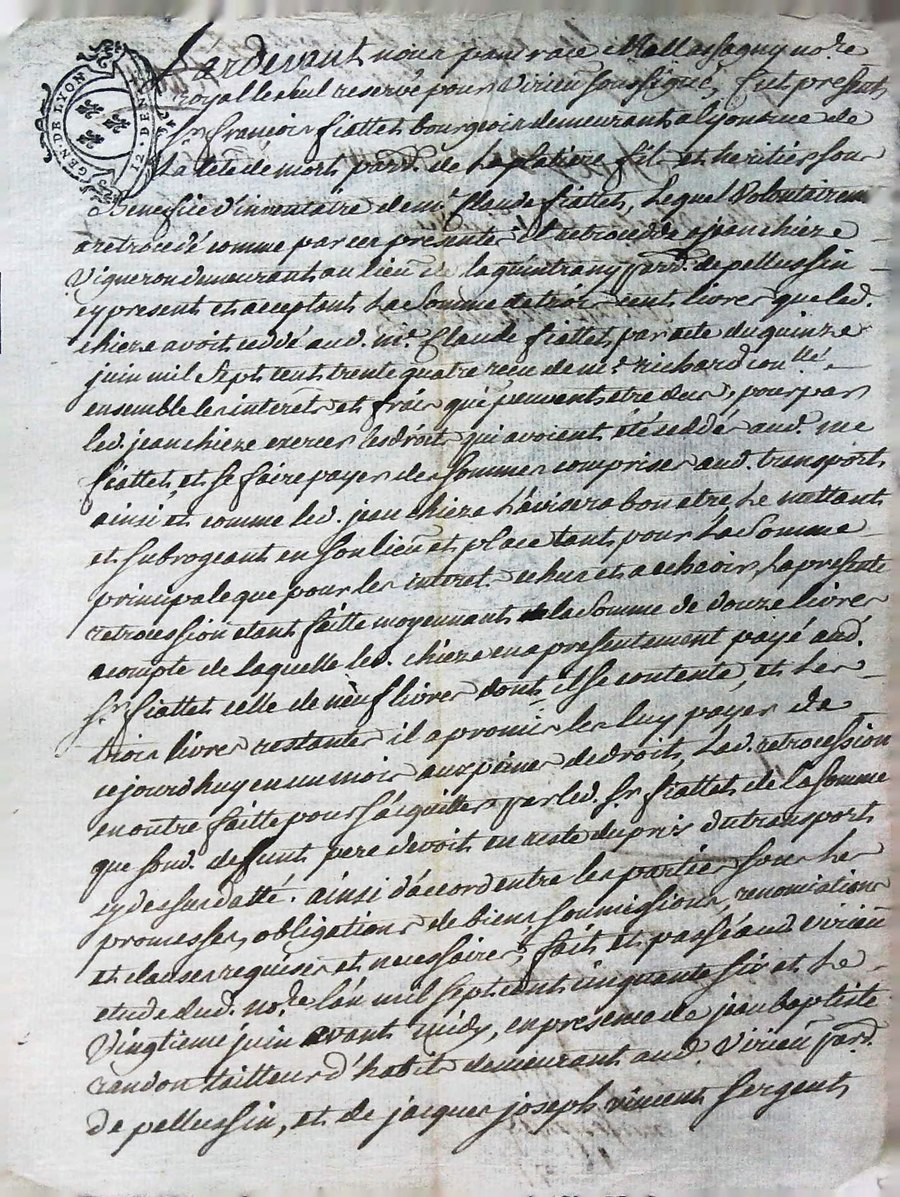 GEN. DE LYON 12. DEN
Pardevant nous pancrace Mallassagny no.re
royal seul reservé pour Virieu soussigné, fut present
Sr. francois fiattet bourgeois demeurant a lyon rue de
La tete de mort parr. de La platiere fils et heritier sous
Benefice d'inventaire de me. Claude fiattet, Lequel Volontairem.
a retrocedé comme par ces presentes il retrocede a jean chieze
Vigneron demeurant au lieu de la quintrany parr. de pellussin
cy present et acceptant La Somme de trois cent livres que led.
chieze avoit ceddé aud. me. Claude fiattet par acte du quinze
juin mil Sept cent trente quatre recu de me. richard con.lle
ensemble les interets et frais qui peuvent etre dus, pour par
led. jean chieze exercer les droit qui avoient eté ceddé aud. me
fiattet et se faire payer des sommes comprises aud. transport
ainsi et comme led. jean chieze L'avisera bon etre, Le mettant
et subrogeant en son lieu et place tant pour La Somme
principale que pour les interet echus et a echeoir, La presente
retrocession etant faitte moyennant la Somme de douze livres
a compte de laquelle led. chieze en a presentement payé aud.
Sr. fiattet celle de neuf livres dont il se contente, et Les
trois livres restantes il a promis les luy payer de
ce jourd'huy en un mois aux peines de droit, Lad. retrocession
en outre faitte pour s'acquitter par led. Sr. fiattet de La Somme
que sond. defunt pere devoit en reste du prix du transport
cy dessus datté. ainsi d'accord entre les parties sous Les
promesses, obligations de biens, soumissions, renonciations
et clauses requises et necessaires; fait et passé aud. virieu
etude dud. no.re L'an mil sept cent cinquante six et Le
Vingtieme juin avant midy, en presence de jean baptiste
randon tailleur d'habits demeurant aud. Virieu parr.
de pellussin, et de jacques joseph vincent Sergent